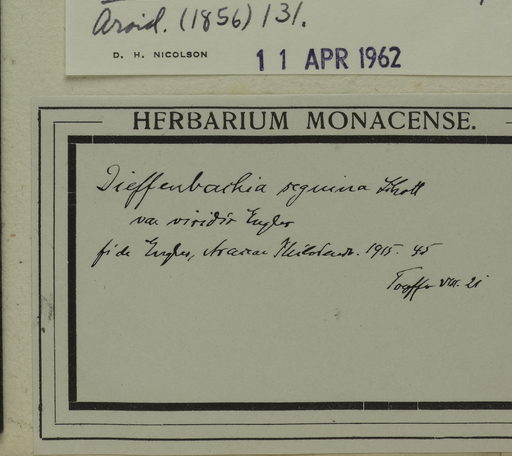 Aroid. (1856) 131.
D. H. NICOLSON
11 APR 1962
HERBARIUM MONACENSE.
Dieffenbachia seguina Schott
var viridis Engler
fide Engler, Araceae Philodendr. 1915. 45
Toepffer VIII. 21